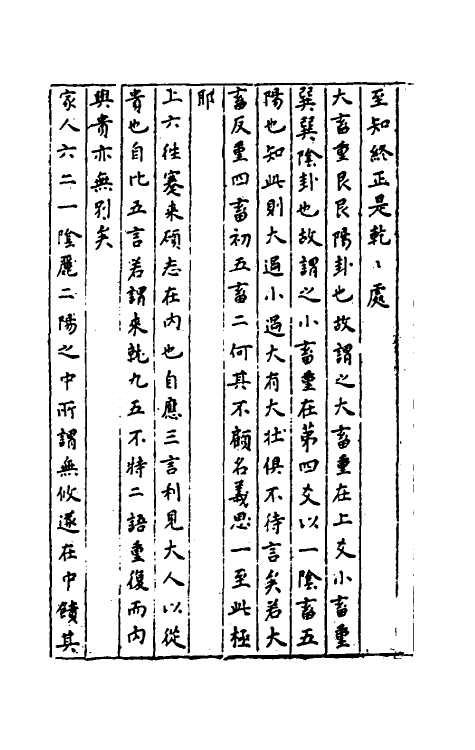 至知終正是乾乾處
大畜重艮艮陽卦也故謂之大畜重在上爻小畜重
巽巽陰卦也故謂之小畜重在第四爻以一陰畜五
陽也知此則大過小過大有大壯俱不待言矣若大
畜反重四畜初五畜二何其不顧名義思一至此極
耶
上六往蹇來碩志在內也自應三言利見大人以從
貴也自比五言若謂來就九五不特二語重復而內
與貴亦無別矣
家人六二一陰麗二陽之中所謂無攸遂在中饋其